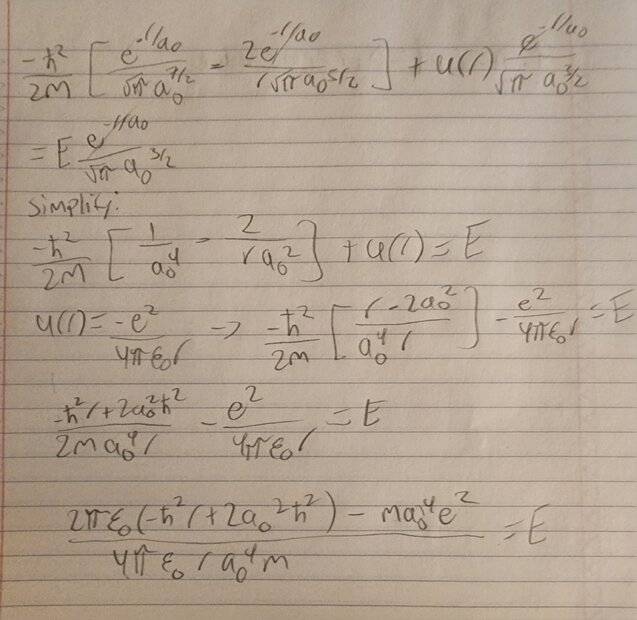 -ħ²/2M [ e^-r/a₀ / √π a₀^7/2 - 2e^-r/a₀ / r√π a₀^5/2 ] + u(r) e^-r/a₀ / √π a₀^3/2
= E e^-r/a₀ / √π a₀^3/2
simplify:
-ħ²/2M [ 1/a₀⁴ - 2/ra₀² ] + u(r) = E
u(r) = -e²/4πε₀r → -ħ²/2m [ r - 2a₀² / a₀⁴ r ] - e²/4πε₀r = E
-ħ²r + 2a₀²ħ² / 2ma₀⁴r - e²/4πε₀r = E
2πε₀(-ħ²r + 2a₀²ħ²) - ma₀⁴e² / 4πε₀ r a₀⁴ m = E